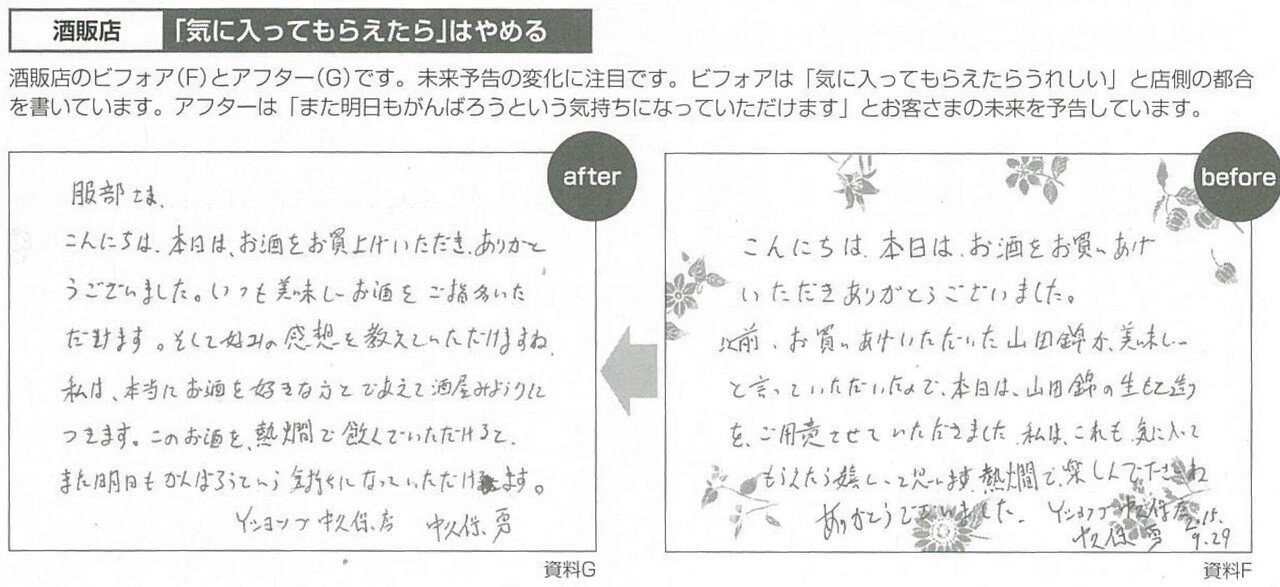 酒販店 「気に入ってもらえたら」はやめる
酒販店のビフォア(F)とアフター(G)です。未来予告の変化に注目です。ビフォアは「気に入ってもらえたらうれしい」と店側の都合
を書いています。アフターは「また明日もがんばろうという気持ちになっていただけます」とお客さまの未来を予告しています。
after
服部さま、
こんにちは、本日は、お酒をお買上げいただき、ありがと
うございました。いつも美味しいお酒をご指名いた
だけます。そして好みの感想を教えていただけますね
私は、本当にお酒を好きな方とであえて酒屋みょうりに
つきます。このお酒を、熱燗で飲んでいただけると、
また明日もがんばろうという気持ちになっていただけます。
Yショップ中久保店 中久保 勇
資料G
before
こんにちは、本日は、お酒をお買いあげ
いただきありがとうございました。
以前、お買いあげいただいた山田錦が、美味しい
と言っていただいたので、本日は、山田錦の生もと造り
を、ご用意させていただきました 私は、これも、気に入って
もらえたら嬉しいと思います、熱燗で、楽しんで下さいね
ありがとうございました。 Yショップ中久保店
中久保 勇 9.29
資料F